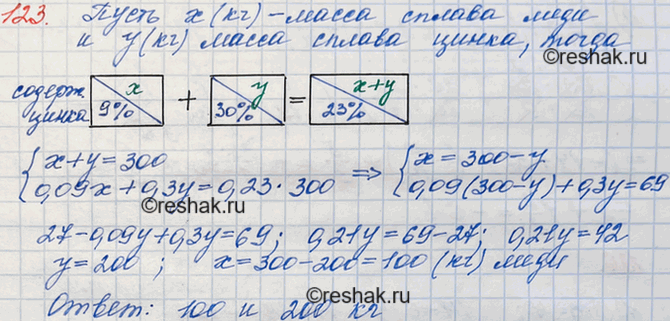 123. Пусть x (кг) - масса сплава меди
и y (кг) масса сплава цинка, тогда
содерж. цинка x 9% + y 30% = x+y 23%
{x+y=300 0,09x+0,3y=0,23·300 => {x=300-y 0,09(300-y)+0,3y=69
27-0,09y+0,3y=69; 0,21y=69-27; 0,21y=42
y=200; x=300-200=100 (кг) меди
Ответ: 100 и 200 кг
reshak.ru
reshak.ru
reshak.ru
reshak.ru
reshak.ru
reshak.ru